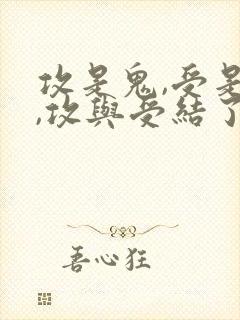 攻是鬼,受是
,攻與受結了
善心狂